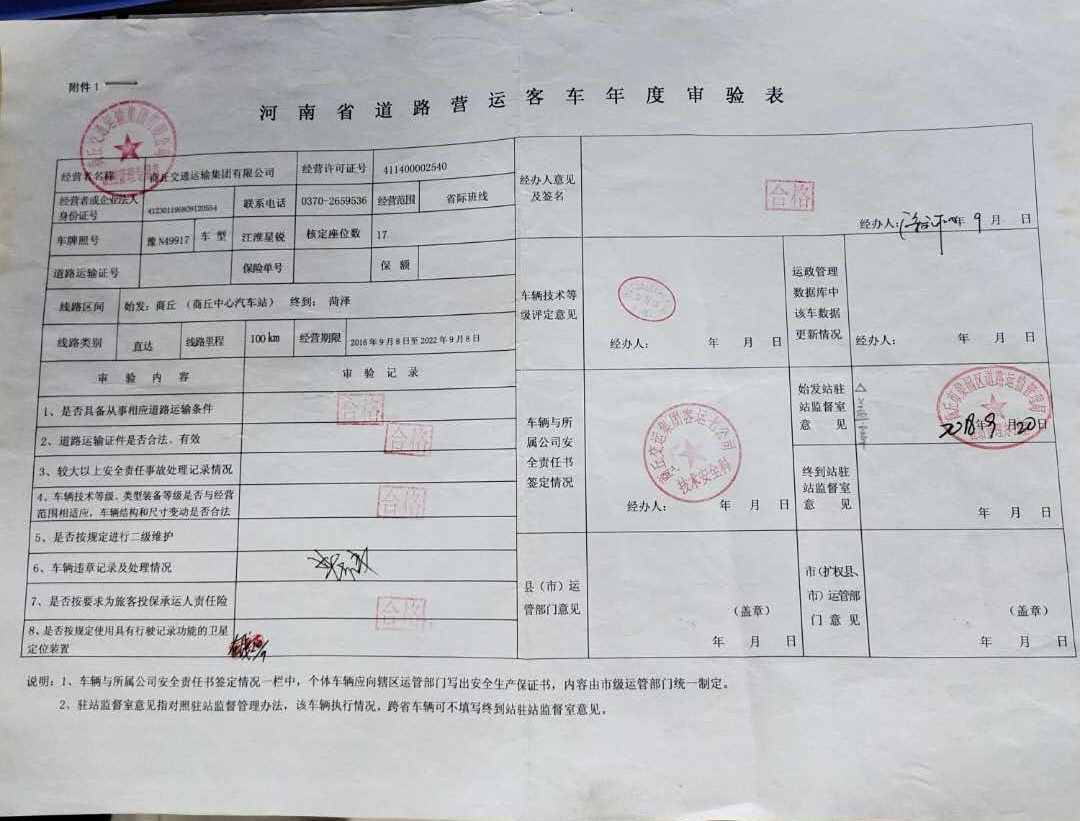 附件1
河南省道路营运客车年度审验表
经营者名称 商丘交通运输集团有限公司 经营许可证号 411400002540
经营者或企业法人
身份证号 联系电话 0370-2659536 经营范围 省际班线
车牌照号 豫N49917 车型 江淮星锐 核定座位数 17
道路运输证号 保险单号 保额
线路区间 始发：商丘（商丘中心汽车站） 终到：菏泽
线路类别 直达 线路里程 100km 经营期限 2016年9月8日至2022年9月8日
审验内容 审验记录
1、是否具备从事相应道路运输条件 合格
2、道路运输证件是否合法、有效 合格
3、较大以上安全责任事故处理记录情况
4、车辆技术等级、类型装备等级是否与经营
范围相适应，车辆结构和尺寸变动是否合法 合格
5、是否按规定进行二级维护
6、车辆违章记录及处理情况
7、是否按要求为旅客投保承运人责任险 合格
8、是否按规定使用具有行驶记录功能的卫星
定位装置
经办人意见
及签名
合格
经办人： 年9月 日
车辆技术等
级评定意见
经办人： 年 月 日
运政管理
数据库中
该车数据
更新情况
经办人： 年 月 日
车辆与所
属公司安
全责任书
签定情况
技术安全科
经办人： 年 月 日
始发站驻
站监督室
意见
2018年9月20日
终到站驻
站监督室
意见
年 月 日
县（市）运
管部门意见
（盖章）
年 月 日
市（扩权县、
市）运管部
门意见
（盖章）
年 月 日
说明：1、车辆与所属公司安全责任书签定情况一栏中，个体车辆应向辖区运管部门写出安全生产保证书，内容由市级运管部门统一制定。
2、驻站监督室意见指对照驻站监督管理办法，该车辆执行情况。跨省车辆可不填写终到站驻站监督室意见。